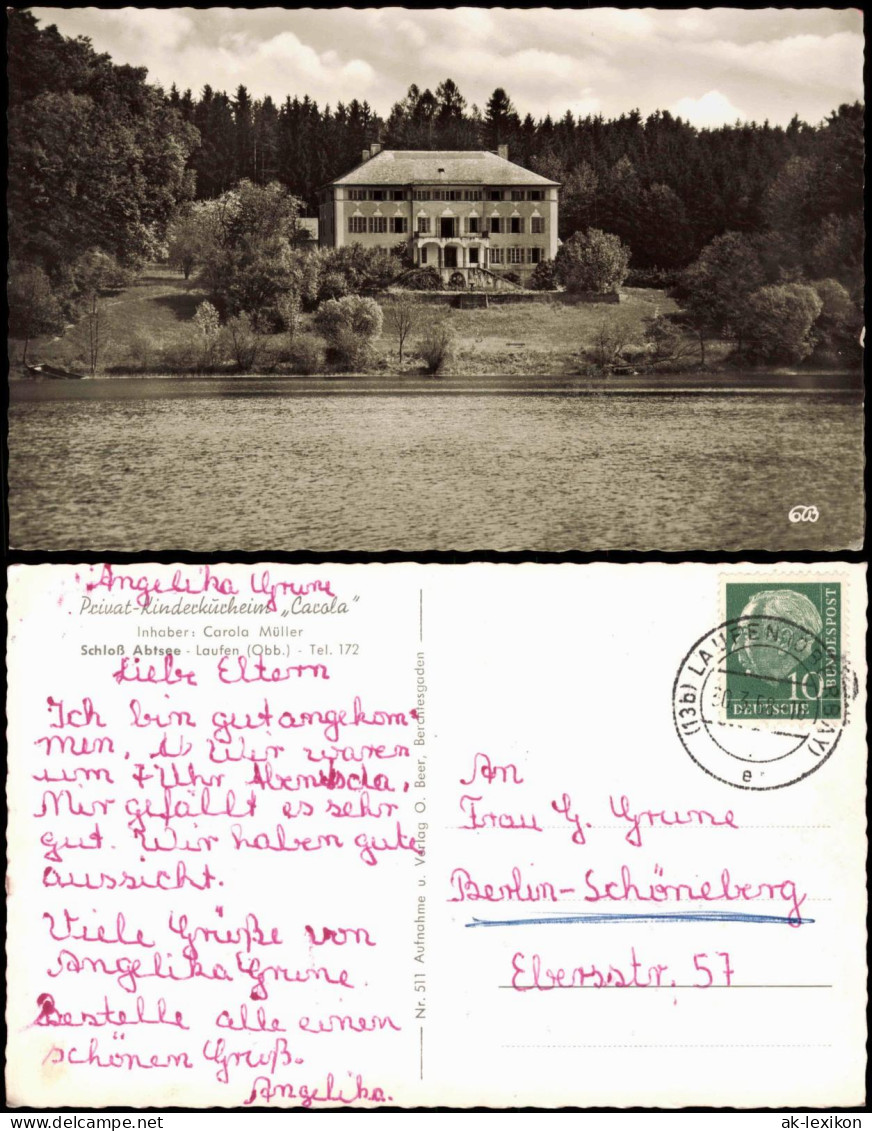 Angelika Grune
Privat-Kinderkurheim „Carola"
Inhaber: Carola Müller
Schloß Abtsee - Laufen (Obb.) - Tel. 172
Liebe Eltern
Ich bin gut angekom-
men, Wir waren
um 7 Uhr Abends da,
Mir gefällt es sehr
gut. Wir haben gute
aussicht.
Viele Grüße von
Angelika Grune.
Bestelle alle einen
schönen Gruß.
Angelika.
Nr. 511 Aufnahme u. Verlag O. Beer, Berchtesgaden
DEUTSCHE
BUNDESPOST
10
(13b) LAUFEN (OBERBAY)
e
An
Frau G. Grune
Berlin-Schöneberg
Ebersstr. 57
OB
www.delcampe.net
ak-lexikon